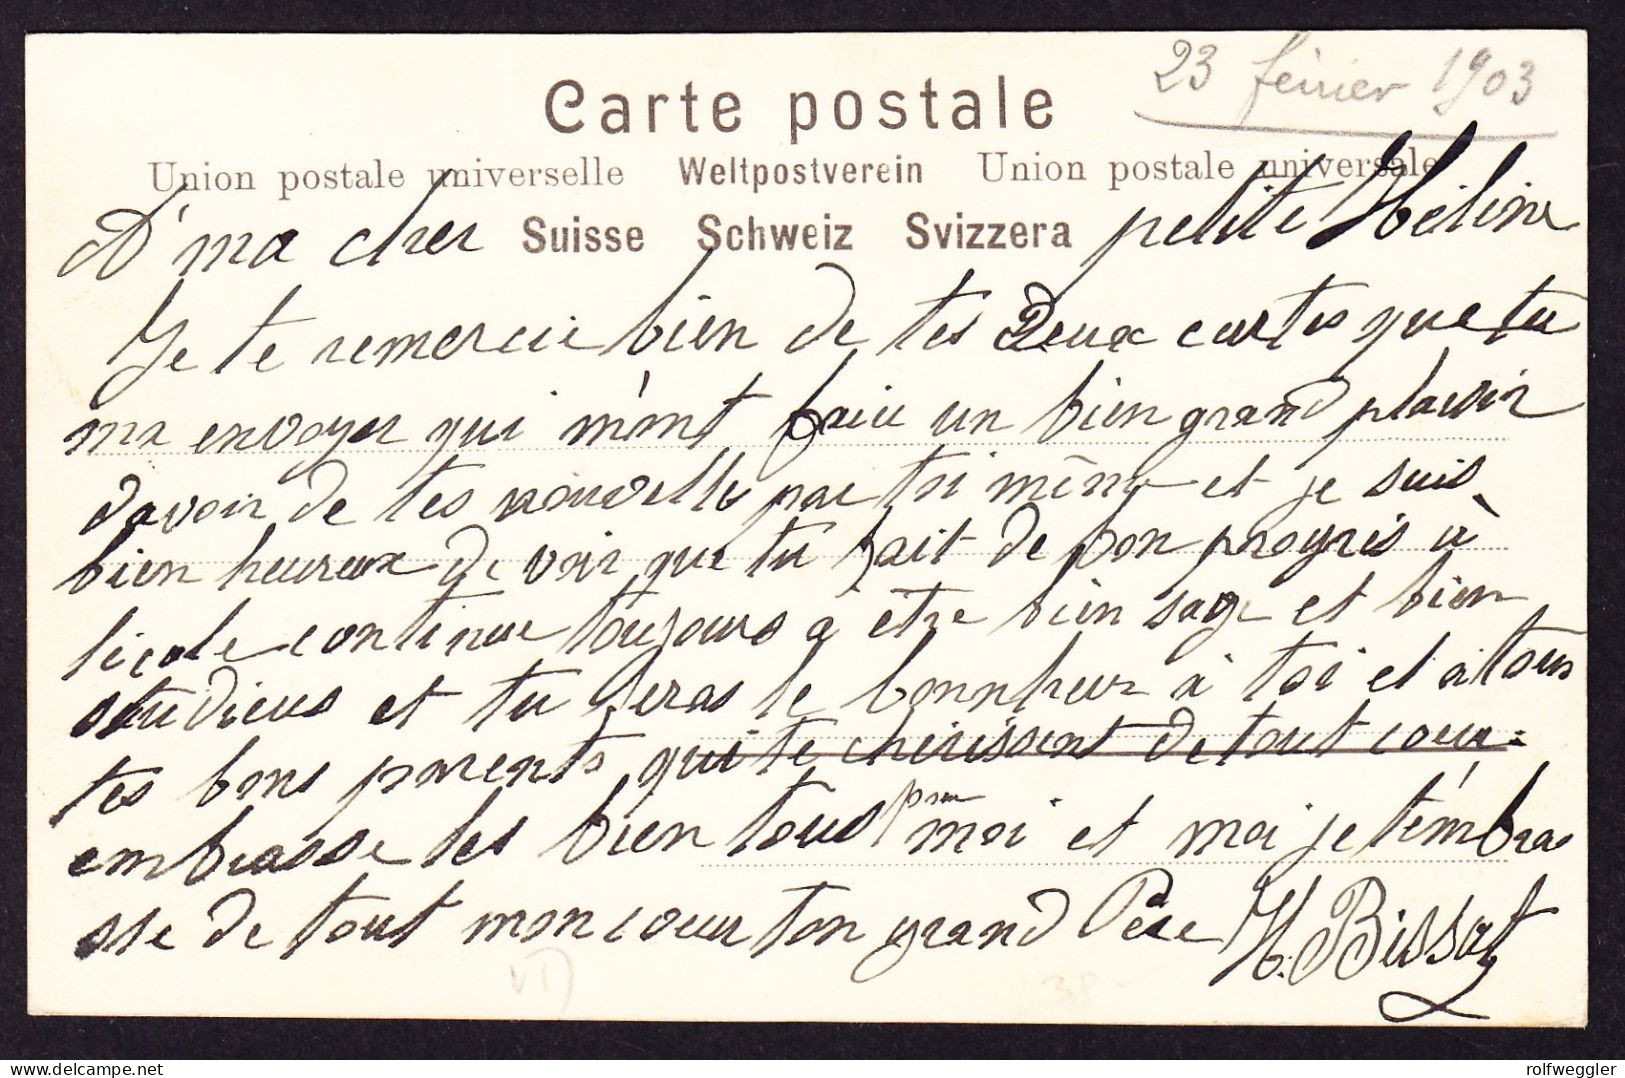 23 février 1903
Carte postale
Union postale universelle Weltpostverein Union postale universale
Suisse Schweiz Svizzera
A' ma cher petite Héline
Je te remercie bien de tes Deux cartes que tu
ma envoyer qui m'ont faie un bien grand plaisir
davoir de tes nouvelle par toi même et je suis
bien heureux de voir que tu fait de bon progrès à
lécole continue toujours a être bien sage et bien
studieus et tu feras le bonheur à toi et à tous
tes bons parents qui te chérissent de tout coeur.
embrasse les bien tous pour moi et moi je t'émbras
sse de tout mon coeur ton grand Père H. Bissat
VI)
38-
rolfweggler